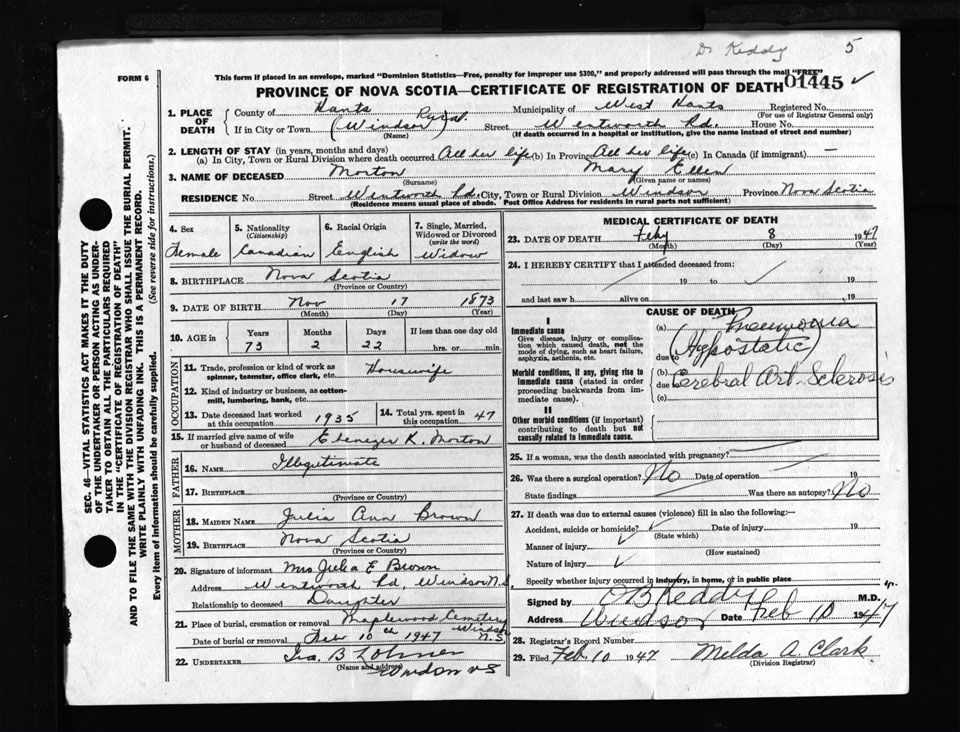 Dr Keddy 5
FORM 6
This form if placed in an envelope, marked "Dominion Statistics—Free, penalty for improper use $300," and properly addressed will pass through the mail "FREE"
01445
PROVINCE OF NOVA SCOTIA—CERTIFICATE OF REGISTRATION OF DEATH
1. PLACE OF DEATH
County of Hants Municipality of West Hants Registered No.
(For use of Registrar General only)
If in City or Town (Windsor) Rural. Street Wentworth Rd. House No.
(Name) (If death occurred in a hospital or institution, give the name instead of street and number)
2. LENGTH OF STAY (in years, months and days)
(a) In City, Town or Rural Division where death occurred All her life (b) In Province All her life (c) In Canada (if immigrant) —
3. NAME OF DECEASED Morton Mary Ellen
(Surname) (Given name or names)
RESIDENCE No. Street Wentworth Rd. City, Town or Rural Division Windsor Province Nova Scotia
(Residence means usual place of abode. Post Office Address for residents in rural parts not sufficient)
4. Sex
Female
5. Nationality
(Citizenship)
Canadian
6. Racial Origin
English
7. Single, Married, Widowed or Divorced
(write the word)
Widow
8. BIRTHPLACE Nova Scotia
(Province or Country)
9. DATE OF BIRTH Nov 17 1873
(Month) (Day) (Year)
10. AGE in Years Months Days If less than one day old
73 2 22 hrs. or min.
OCCUPATION
11. Trade, profession or kind of work as spinner, teamster, office clerk, etc. Housewife
12. Kind of industry or business, as cotton-mill, lumbering, bank, etc.
13. Date deceased last worked at this occupation 1935
14. Total yrs. spent in this occupation 47
15. If married give name of wife or husband of deceased Ebenezer K. Morton
FATHER
16. NAME Illegitimate
17. BIRTHPLACE
(Province or Country)
MOTHER
18. MAIDEN NAME Julia Ann Brown
19. BIRTHPLACE Nova Scotia
(Province or Country)
20. Signature of informant Mrs Julia E Brown
Address Wentworth Rd, Windsor N.S.
Relationship to deceased Daughter
21. Place of burial, cremation or removal Maplewood Cemetery Windsor N.S.
Date of burial or removal Feb 10th 1947
22. UNDERTAKER Ira. B Lohner
(Name and address)
Windsor N S
MEDICAL CERTIFICATE OF DEATH
23. DATE OF DEATH Feby 8 1947
(Month) (Day) (Year)
24. I HEREBY CERTIFY that I attended deceased from:
19 to 19
and last saw h alive on , 19
CAUSE OF DEATH
I
Immediate cause
Give disease, injury or complication which caused death, not the mode of dying, such as heart failure, asphyxia, asthenia, etc.
(a) Pneumonia
(Hypostatic)
due to
Morbid conditions, if any, giving rise to immediate cause (stated in order proceeding backwards from immediate cause).
(b) Cerebral Art. Sclerosis
due
(c)
II
Other morbid conditions (if important) contributing to death but not causally related to immediate cause.
25. If a woman, was the death associated with pregnancy?
26. Was there a surgical operation? No Date of operation 19
State findings Was there an autopsy? No
27. If death was due to external causes (violence) fill in also the following:—
Accident, suicide or homicide? Date of injury 19
(State which)
Manner of injury
(How sustained)
Nature of injury
Specify whether injury occurred in industry, in home, or in public place
Signed by O B Keddy M.D.
Address Windsor Date Feb 10 1947
28. Registrar's Record Number
29. Filed Feb 10 1947 Melda A. Clark
(Division Registrar)
SEC. 46—VITAL STATISTICS ACT MAKES IT THE DUTY
OF THE UNDERTAKER OR PERSON ACTING AS UNDER-
TAKER TO OBTAIN ALL THE PARTICULARS REQUIRED
IN THE "CERTIFICATE OF REGISTRATION OF DEATH"
AND TO FILE THE SAME WITH THE DIVISION REGISTRAR WHO SHALL ISSUE THE BURIAL PERMIT.
WRITE PLAINLY WITH UNFADING INK. THIS IS A PERMANENT RECORD.
Every item of information should be carefully supplied. (See reverse side for instructions.)